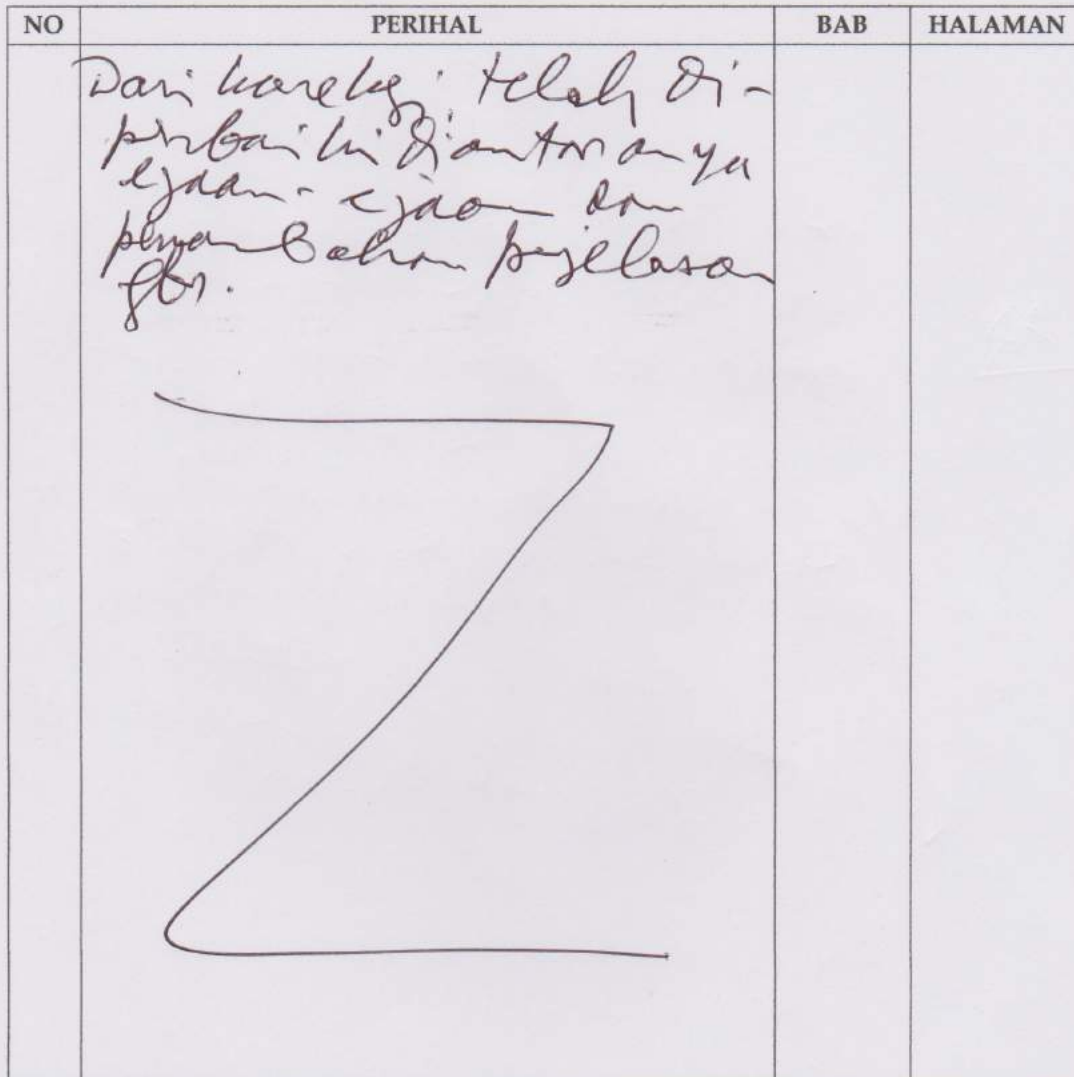 NO PERIHAL BAB HALAMAN
Dari koreksi telah di-
perbaiki diantaranya
ejaan-ejaan dan
penambahan penjelasan
gbr.